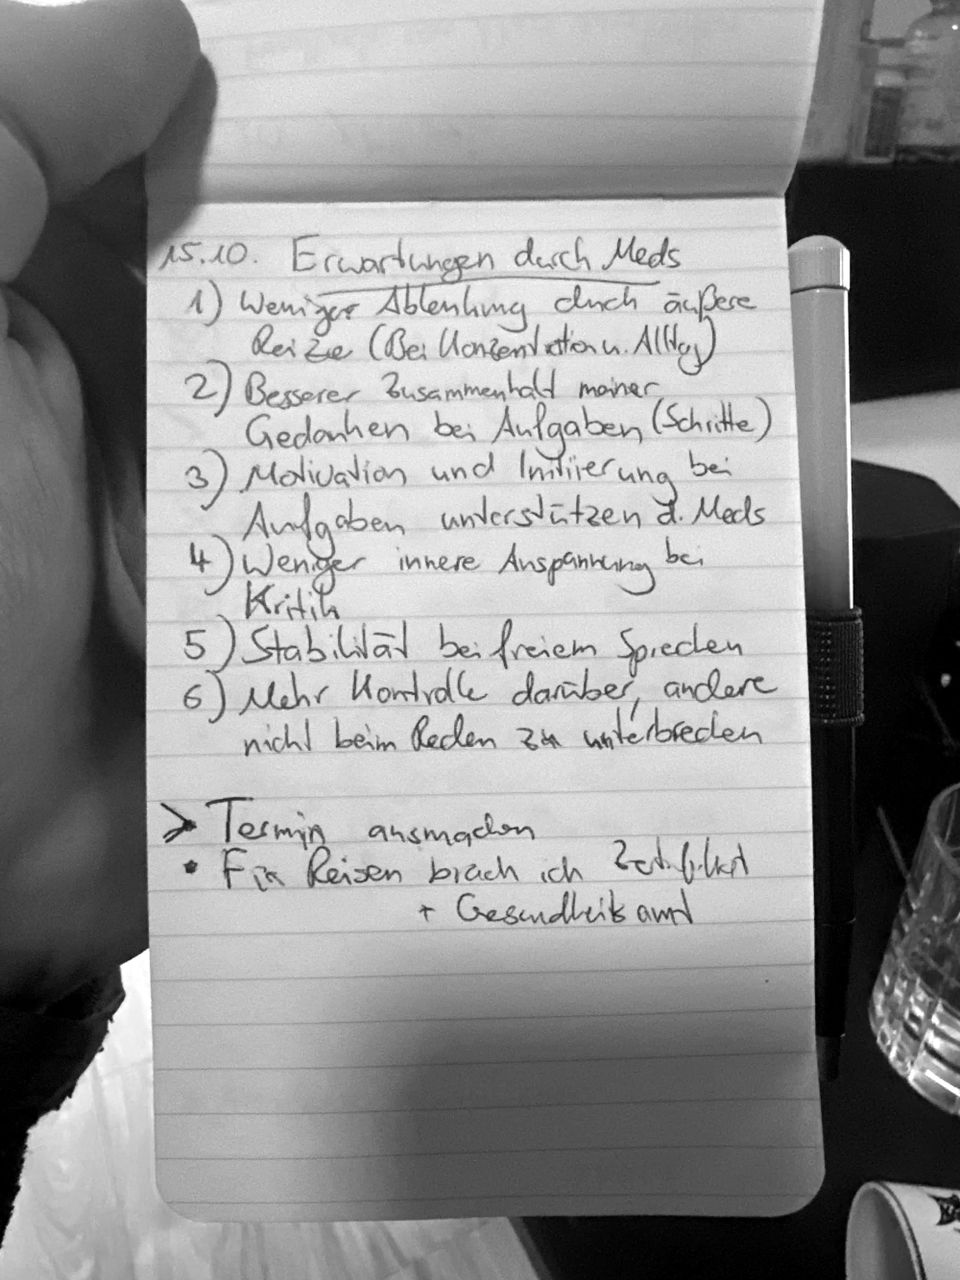 15.10. Erwartungen durch Meds
1) Weniger Ablenkung durch äußere
Reize (Bei Konzentration u. Alltag)
2) Besserer Zusammenhalt meiner
Gedanken bei Aufgaben (Schritte)
3) Motivation und Initiierung bei
Aufgaben unterstützen d. Meds
4) Weniger innere Anspannung bei
Kritik
5) Stabilität bei freiem Sprechen
6) Mehr Kontrolle darüber, andere
nicht beim Reden zu unterbrechen
> Termin ausmachen
• Für Reisen brauch ich
+ Gesundheitsamt